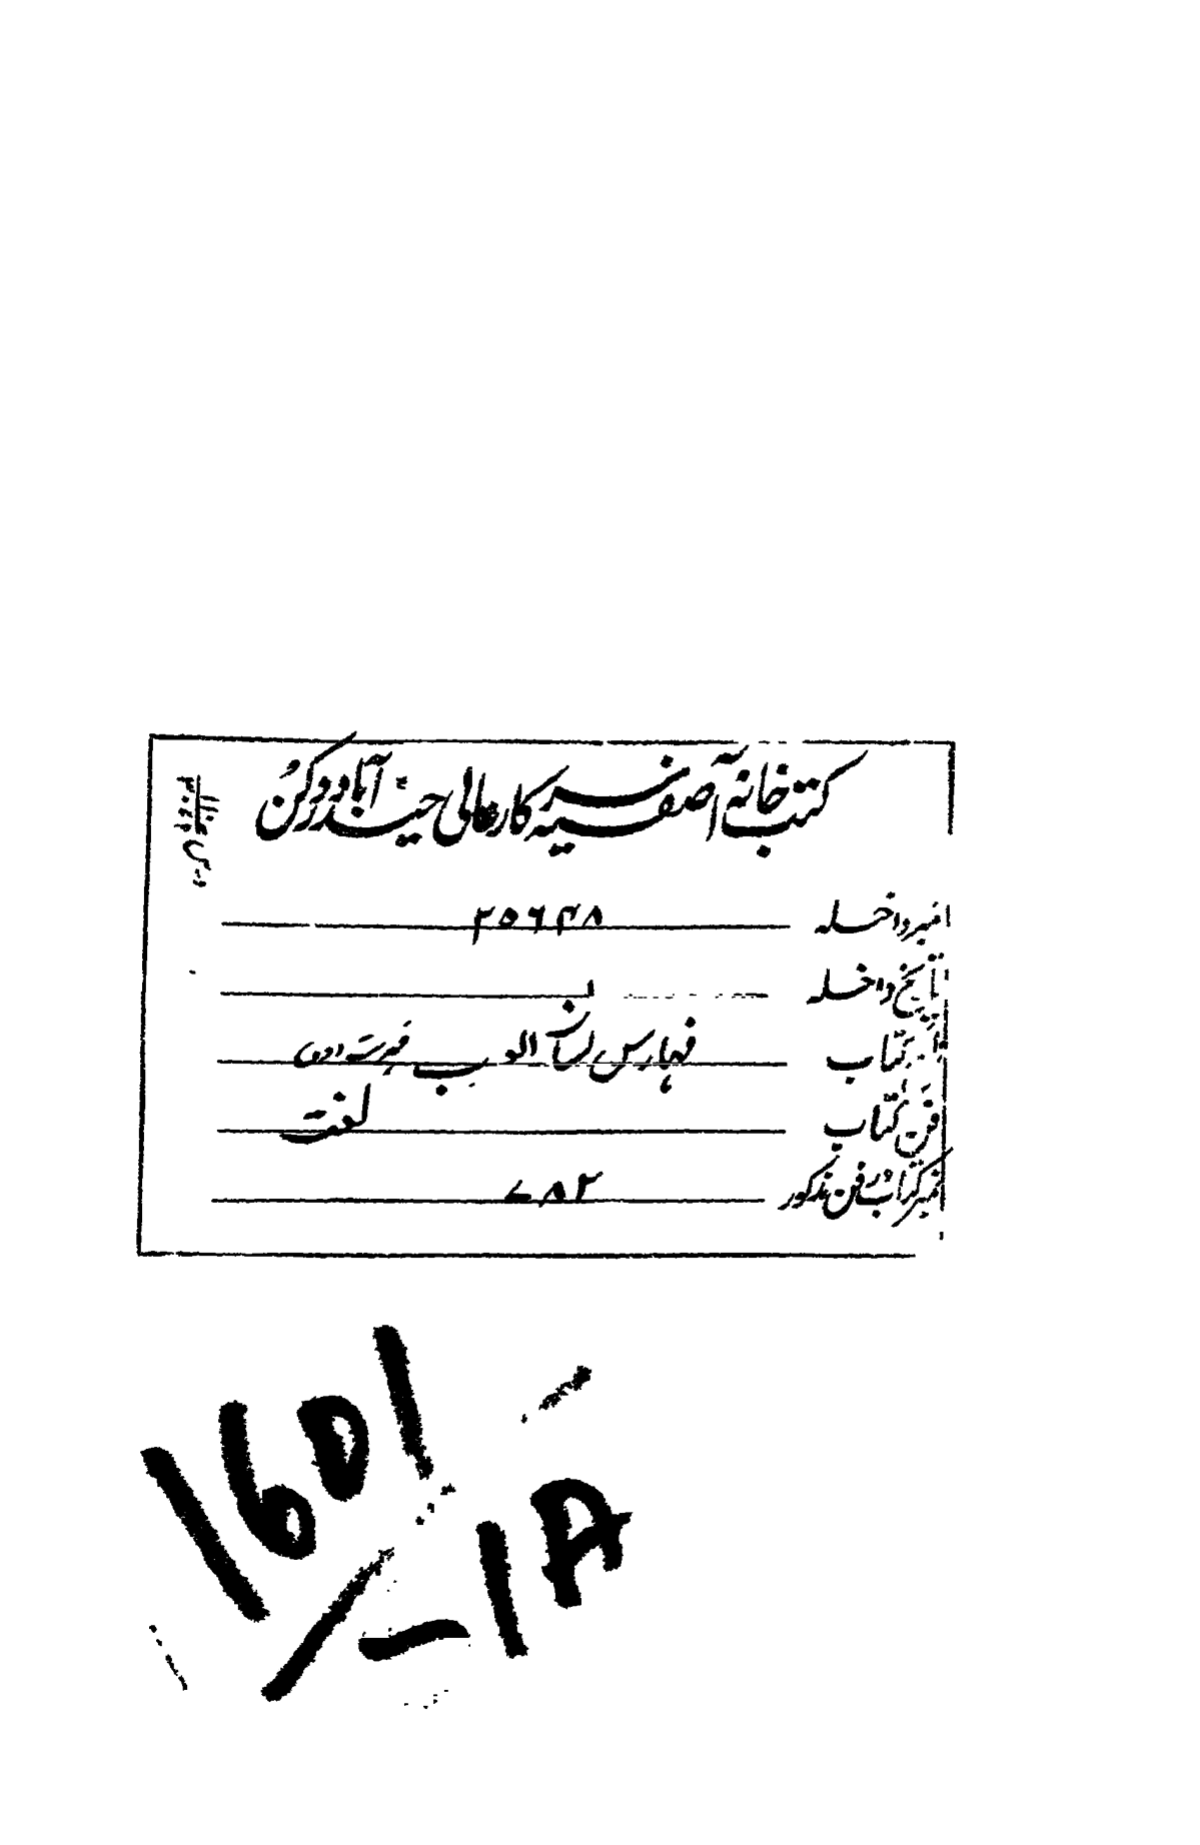 کتب خانہ آصفیہ سرکار عالی حیدرآباد دکن
نمبر داخلہ ۲۵۶۴۸
تاریخ داخلہ
نام کتاب فہارس لسان العرب فہرست
فن کتاب لغت
نمبر کتاب در فن مذکور ۷۸۲
1601
-1A